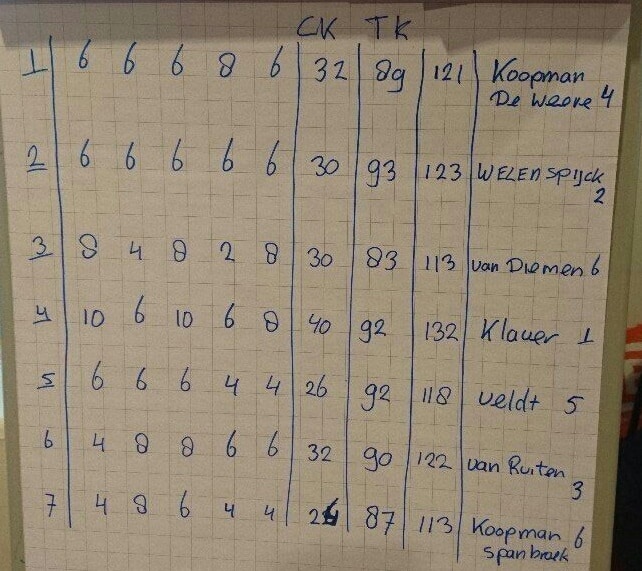 CK TK
1 6 6 6 8 6 32 89 121 Koopman
De Weere 4
2 6 6 6 6 6 30 93 123 WELEN SPIJCK
2
3 8 4 8 2 8 30 83 113 van Diemen 6
4 10 6 10 6 8 40 92 132 Klaver 1
5 6 6 6 4 4 26 92 118 veldt 5
6 4 8 8 6 6 32 90 122 van Ruiten
3
7 4 8 6 4 4 26 87 113 Koopman 6
Spanbroek